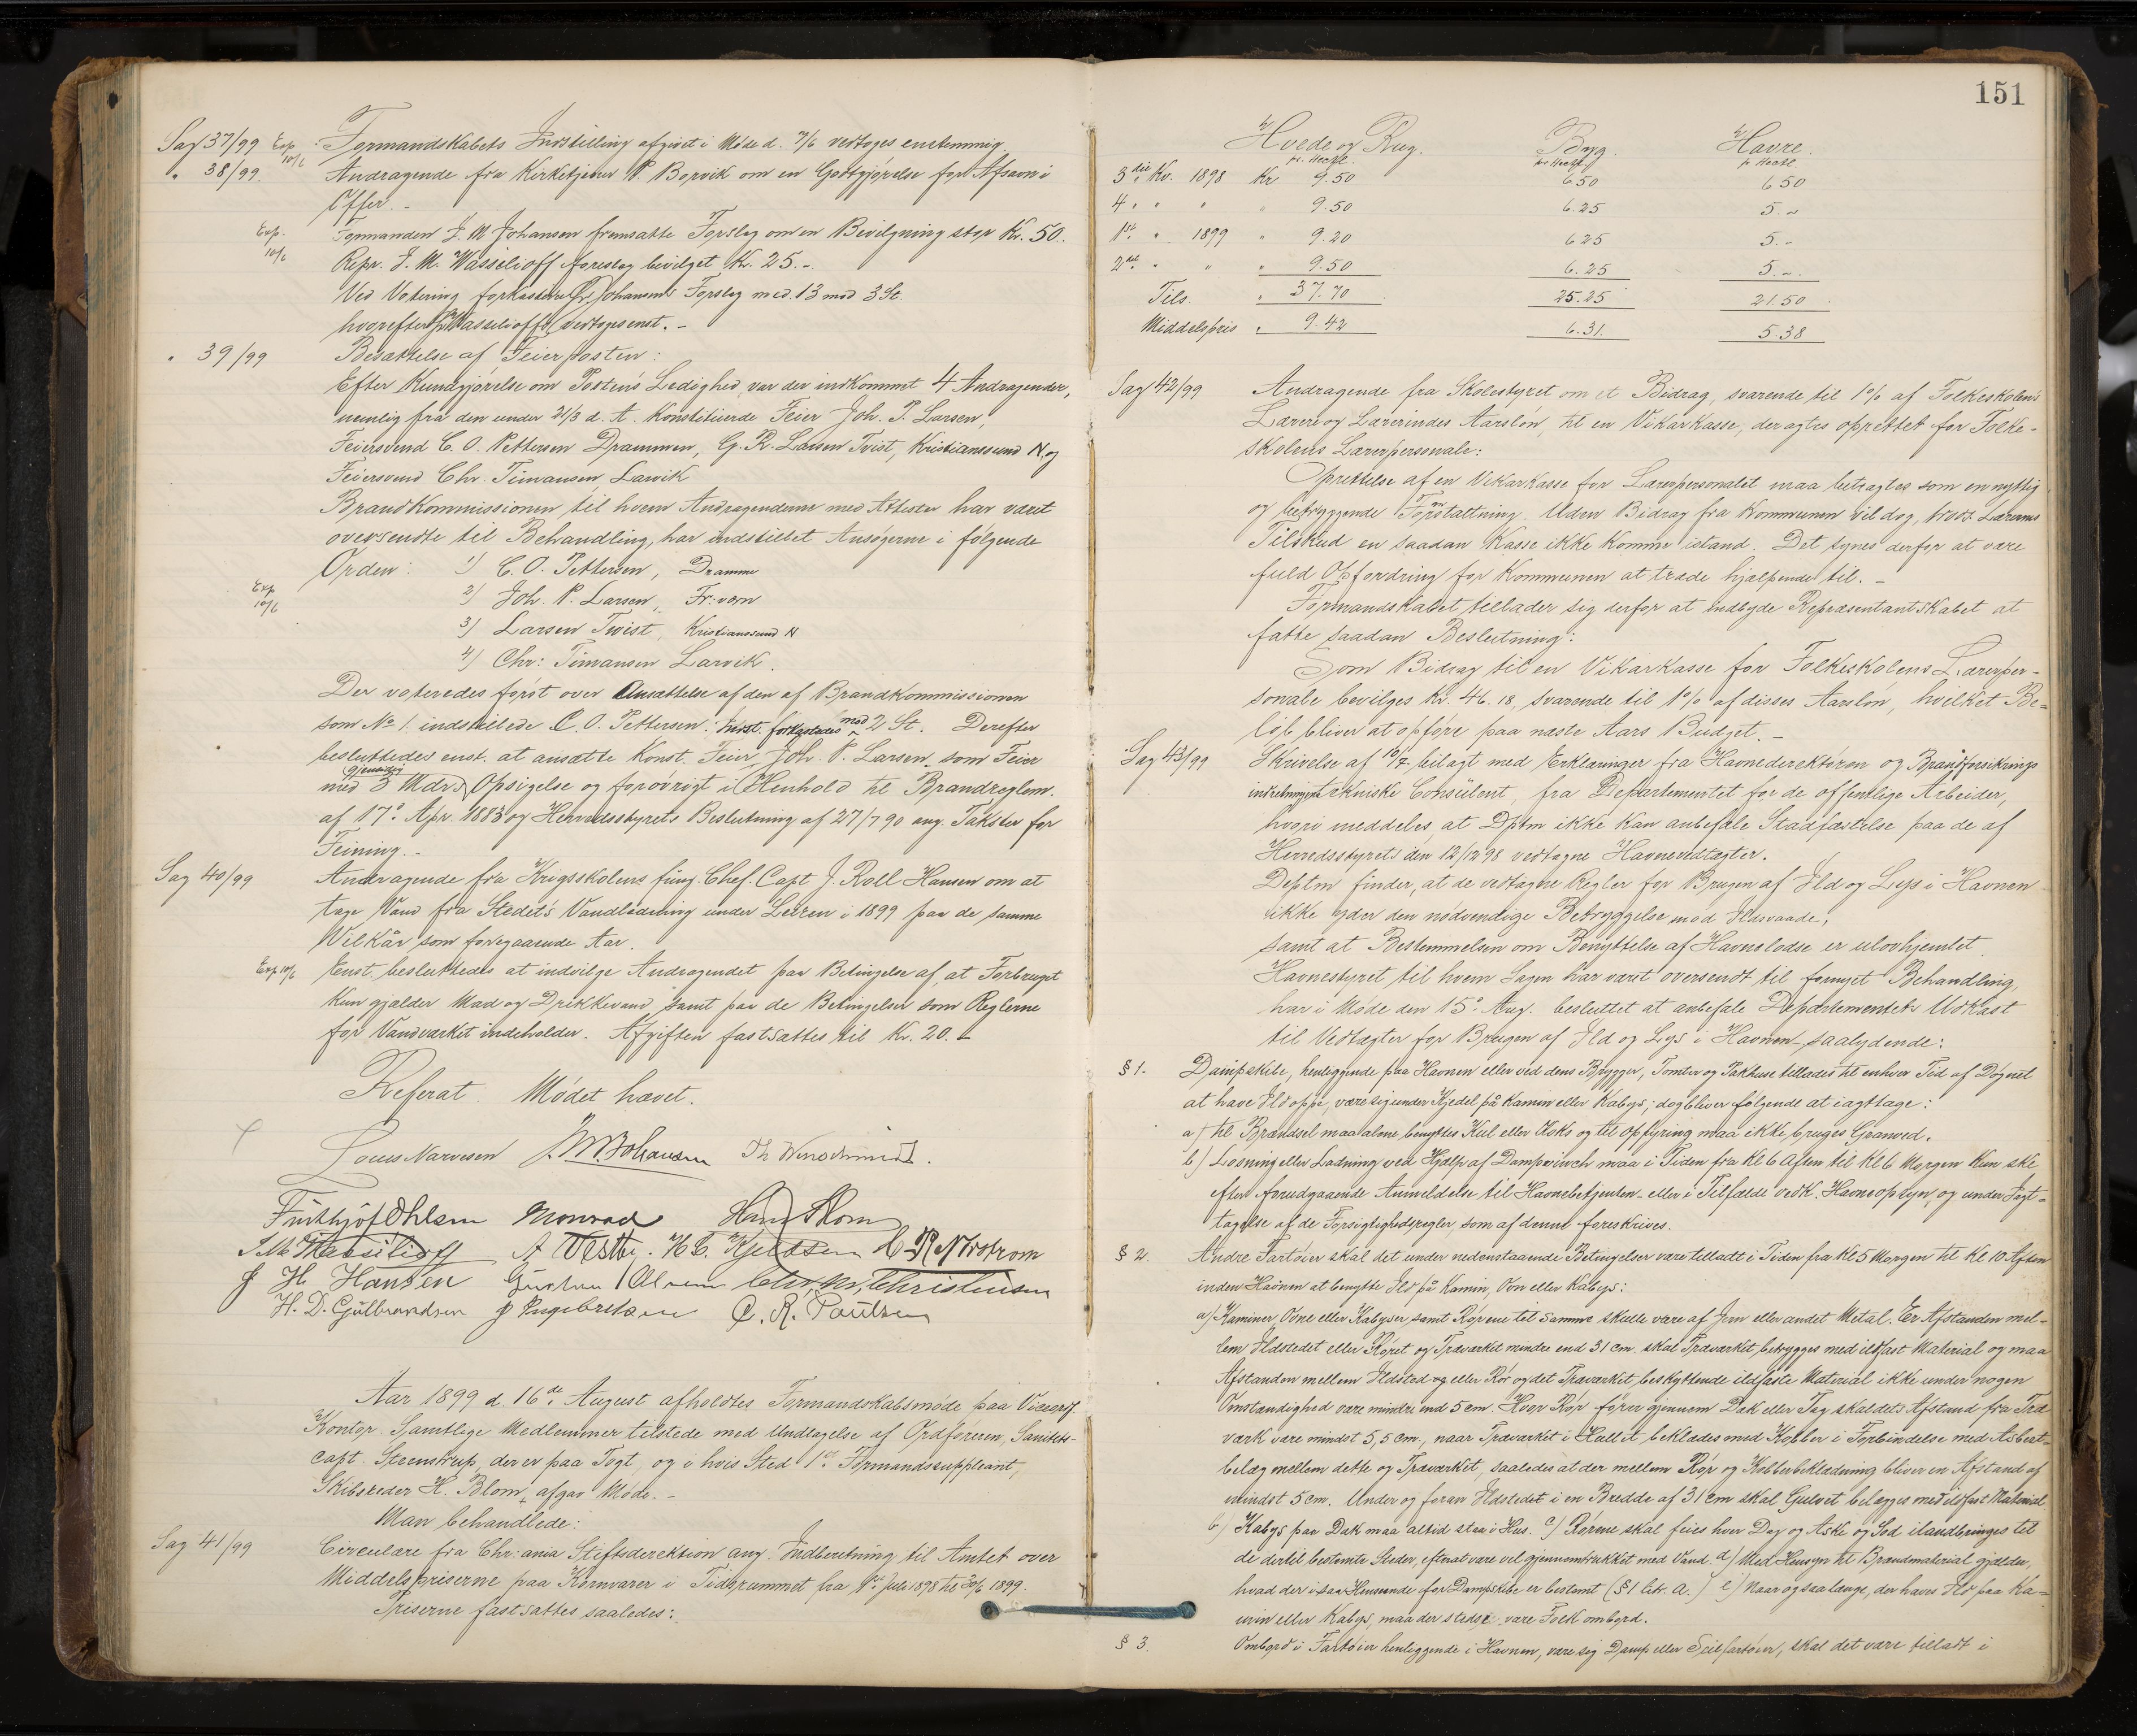 Sag 37/99 Exp. 10/6 Formandskabets Indstilling afgivet i Møde d. 7/6 vedtoges enstemmig.
" 38/99. Andragende fra Kirketjener P. Borvik om en Godtgjørelse for Afsavn i
Offer. –
Exp. 10/6 Formanden J. M. Johansen fremsatte Forslag om en Bevilgning stor Kr. 50.
Repr. J. M. Wassilioff foreslog bevilget Kr. 25.–
Ved Votering forkastedes Hr. Johansens Forslag med 13 mod 3 St.
hvorefter Hr. Wassilioffs vedtoges enst. –
" 39/99 Besættelse af Feierposten:
Efter Kundgjørelse om Postens Ledighed var der indkommet 4 Andragender,
nemlig fra den under 21/3 d. A. Konstituerde Feier Joh. P. Larsen,
Feiersvend C. O. Pettersen Drammen, G. R. Larsen Tvist, Kristianssund N. og
Feiersvend Chr. Timansen Larvik
Brandkommissionen til hvem Andragenderne med Attester har været
oversendte til Behandling, har indstillet Ansøgerne i følgende
Orden: 1) C. O. Pettersen, Drammen
Exp 10/6 2) Joh. P. Larsen, Fr:værn
3) Larsen Twist, Kristianssund N
4) Chr: Timansen Larvik.
Der voteredes først over Ansættelse af den af Brandkommissionen
som No 1. indstillede C. O. Pettersen: Indst. forkastedes mod 2 St. Derefter
besluttedes enst. at ansætte Konst. Feier Joh. P. Larsen som Feier
med 3 Mdr.s gjensidig Opsigelse og forøvrigt i Henhold til Brandreglem.
af 17de Apr. 1883 og Herredsstyrets Beslutning af 27/7 90 ang. Takster for
Feining. –
Sag 40/99 Andragende fra Krigsskolens fung. Chef. Capt J. Roll Hansen om at
tage Vand fra Stedets Vandledning under Leiren i 1899 paa de samme
Vilkår som foregaaende Aar.
Exp 10/6 Enst. besluttedes at indvilge Andragendet paa Betingelse af, at Forbruget
kun gjælder Mad og Drikkevand samt paa de Betingelser som Reglerne
for Vandværket indeholder. Afgiften fastsattes til Kr. 20. –
Referat. Mødet hævet.
Louis Narvesen J. M. Johansen Th Winschmidt.
Frithjof Ohlsen Monrad Hans Blom
J. M. Wassilioff A Vestby. H C. Kjeldsen C R Norstrom
J H Hansen Gustav Olsen Chr. M. Christensen
H. D. Gulbrandsen J Ingebretsen C. R. Paulsen
Aar 1899 d. 16de August afholdtes Formandskabsmøde paa Viceordf.
Kontor. Samtlige Medlemmer tilstede med Undtagelse af Ordføreren, Sanitets-
capt. Steenstrup, der er paa Togt, og i hvis Sted 1ste Formandssuppleant,
Skibsreder H. Blom, afgav Møde. –
Man behandlede:
Sag 41/99 Circulære fra Chr:ania Stiftsdirektion ang. Indberetning til Amtet over
Middelspriserne paa Kornvarer i Tidsrummet fra 1ste Juli 1898 til 30/6 1899.
Priserne fastsattes saaledes:
151
Hvede og Rug. Byg. Havre.
pr. Hectl. pr Hectl. pr Hectl.
3die Kv. 1898 Kr 9.50 6.50 6 50
4 " " " " 9.50 6.25 5. "
1ste " 1899 " 9.20 6 25 5. "
2det " " " 9.50 6.25 5. "
Tils. " 37.70 25.25 21.50
Middelspris " 9.42 6.31. 5.38
Sag 42/99 Andragende fra Skolestyret om et Bidrag, svarende til 1% af Folkeskolens
Lærere og Lærerindes Aarsløn, til en Vikarkasse, der agtes oprettet for Folke-
skolens Lærerpersonale:
Oprettelse af en Vikarkasse for Lærerpersonalet maa betragtes som en nyttig
og betryggende Foranstaltning. Uden Bidrag fra Kommunen vil dog, trods Lærernes
Tilskud en saadan Kasse ikke komme istand. Det synes derfor at være
fuld Opfordring for Kommunen at træde hjælpende til. –
Formandskabet tillader sig derfor at indbyde Repræsentantskabet at
fatte saadan Beslutning:
Som Bidrag til en Vikarkasse for Folkeskolens Lærerper-
sonale bevilges Kr. 46.18, svarende til 1% af disses Aarsløn, hvilket Be-
løb bliver at opføre paa næste Aars Budget. –
Sag 43/99 Skrivelse af 10/7 bilagt med Erklæringer fra Havnedirektøren og Brandforsikrings
indretningens tekniske Consulent, fra Departementet for de offentlige Arbeider,
hvori meddeles at Dptm ikke kan anbefale Stadfæstelse paa de af
Herredsstyret den 12/12 98 vedtagne Havnevedtægter.
Deptm finder, at de vedtagne Regler for Brugen af Ild og Lys i Havnen
ikke yder den nødvendige Betryggelse mod Ildsvaade,
samt at Bestemmelsen om Benyttelse af Havnelodse er ulovhjemlet.
Havnestyret til hvem Sagen har været oversendt til fornyet Behandling,
har i Møde den 15de Aug. besluttet at anbefale Departementets Udkast
til Vedtægter for Brugen af Ild og Lys i Havnen saalydende:
§ 1. Dampskibe, henliggende paa Havnen eller ved dens Brygger, Tomter og Pakhuse tillades til enhver Tid af Døgnet
at have Ild oppe, være sig under Kjedel på Kamin eller Kabys; dog bliver følgende at iagttage:
a) til Brændsel maa alene benyttes Kul eller Koks og til Opfyring maa ikke bruges Granved.
b) Losning eller Ladning ved Hjælp af Dampwinch maa i Tiden fra Kl 6 Aften til Kl 6 Morgen kun ske
efter forudgaaende Anmeldelse til Havnebetjenten – eller i Tilfælde vedk. Havneopsyn, og under Iagt-
tagelse af de Forsigtighedsregler, som af denne foreskrives.
§ 2. Andre Fartøier skal det under nedenstaaende Betingelser være tilladt i Tiden fra Kl. 5 Morgen til Kl 10 Aften
inden Havnen at benytte Ild på Kamin, Ovn eller Kabys:
a) Kaminer, Ovne eller Kabyser, samt Rørene til samme skulle være af Jern eller andet Metal. Er Afstanden mel-
lem Ildstedet eller Røret og Træværket mindre end 31 cm. skal Træværket betrygges med ildfast Material og maa
Afstanden mellem Ildsted og eller Rør og det Træværket beskyttende ildfaste Material ikke under nogen
Omstændighed være mindre end 5 cm. Hvor Rør fører gjennem Dæk eller Tag skal dets Afstand fra Træ
værk være mindst 5,5 cm., naar Træværket i Hullet beklædes med Kobber i Forbindelse med Asbest-
belæg mellem dette og Træværket, saaledes at der mellem Rør og Kobberbeklædning bliver en Afstand af
mindst 5 cm. Under og foran Ildstedet i en Bredde af 31 cm skal Gulvet belægges med ildfast Material
b) Kabys paa Dæk maa altid staa i Hus. c) Rørene skal feies hver Dag og Aske og Sod ilandbringes til
de dertil bestemte Steder, efterat være vel gjennemtrukket med Vand. d) Med Hensyn til Brændmaterial gjælder,
hvad der i saa Henseende for Dampskibe er bestemt (§ 1 litr. a.) e) Naar og saalænge, der haves Ild paa Ka-
min eller Kabys, maa der stedse være Folk ombord.
§ 3. Ombord i Fartøier henliggende i Havnen, være sig Damp eller Seilfartøier, skal det være tilladt i